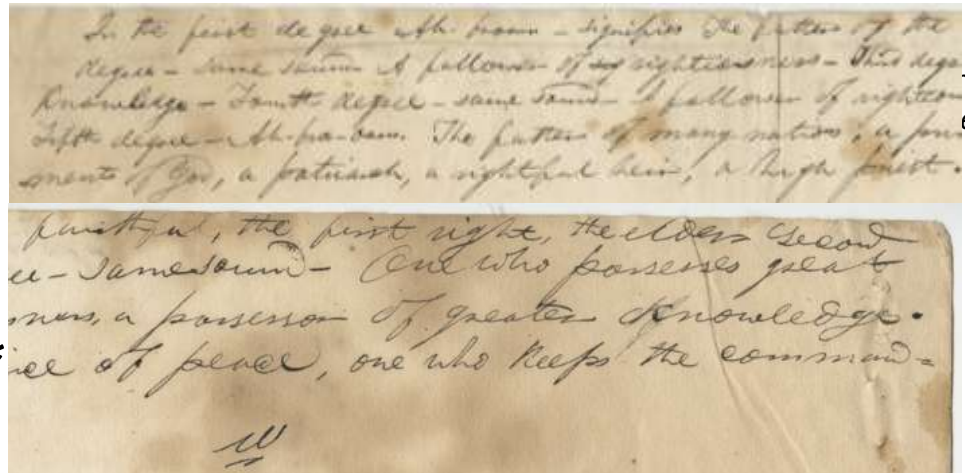 In the first degree Ah-broam - signifies The father of the
degree - same sound A follower of righteousness - Third degr
Knowledge - Fourth degree - same sound - A follower of righteou
Fifth degree - Ah-bra-oam. The father of many nations, a prin
ments of God, a patriarch, a rightful heir, a high priest.
faithful, the first right, the elder second
ee - same sound - One who possesses great
sness, a possessor of greater Knowledge.
nce of peace, one who keeps the command=